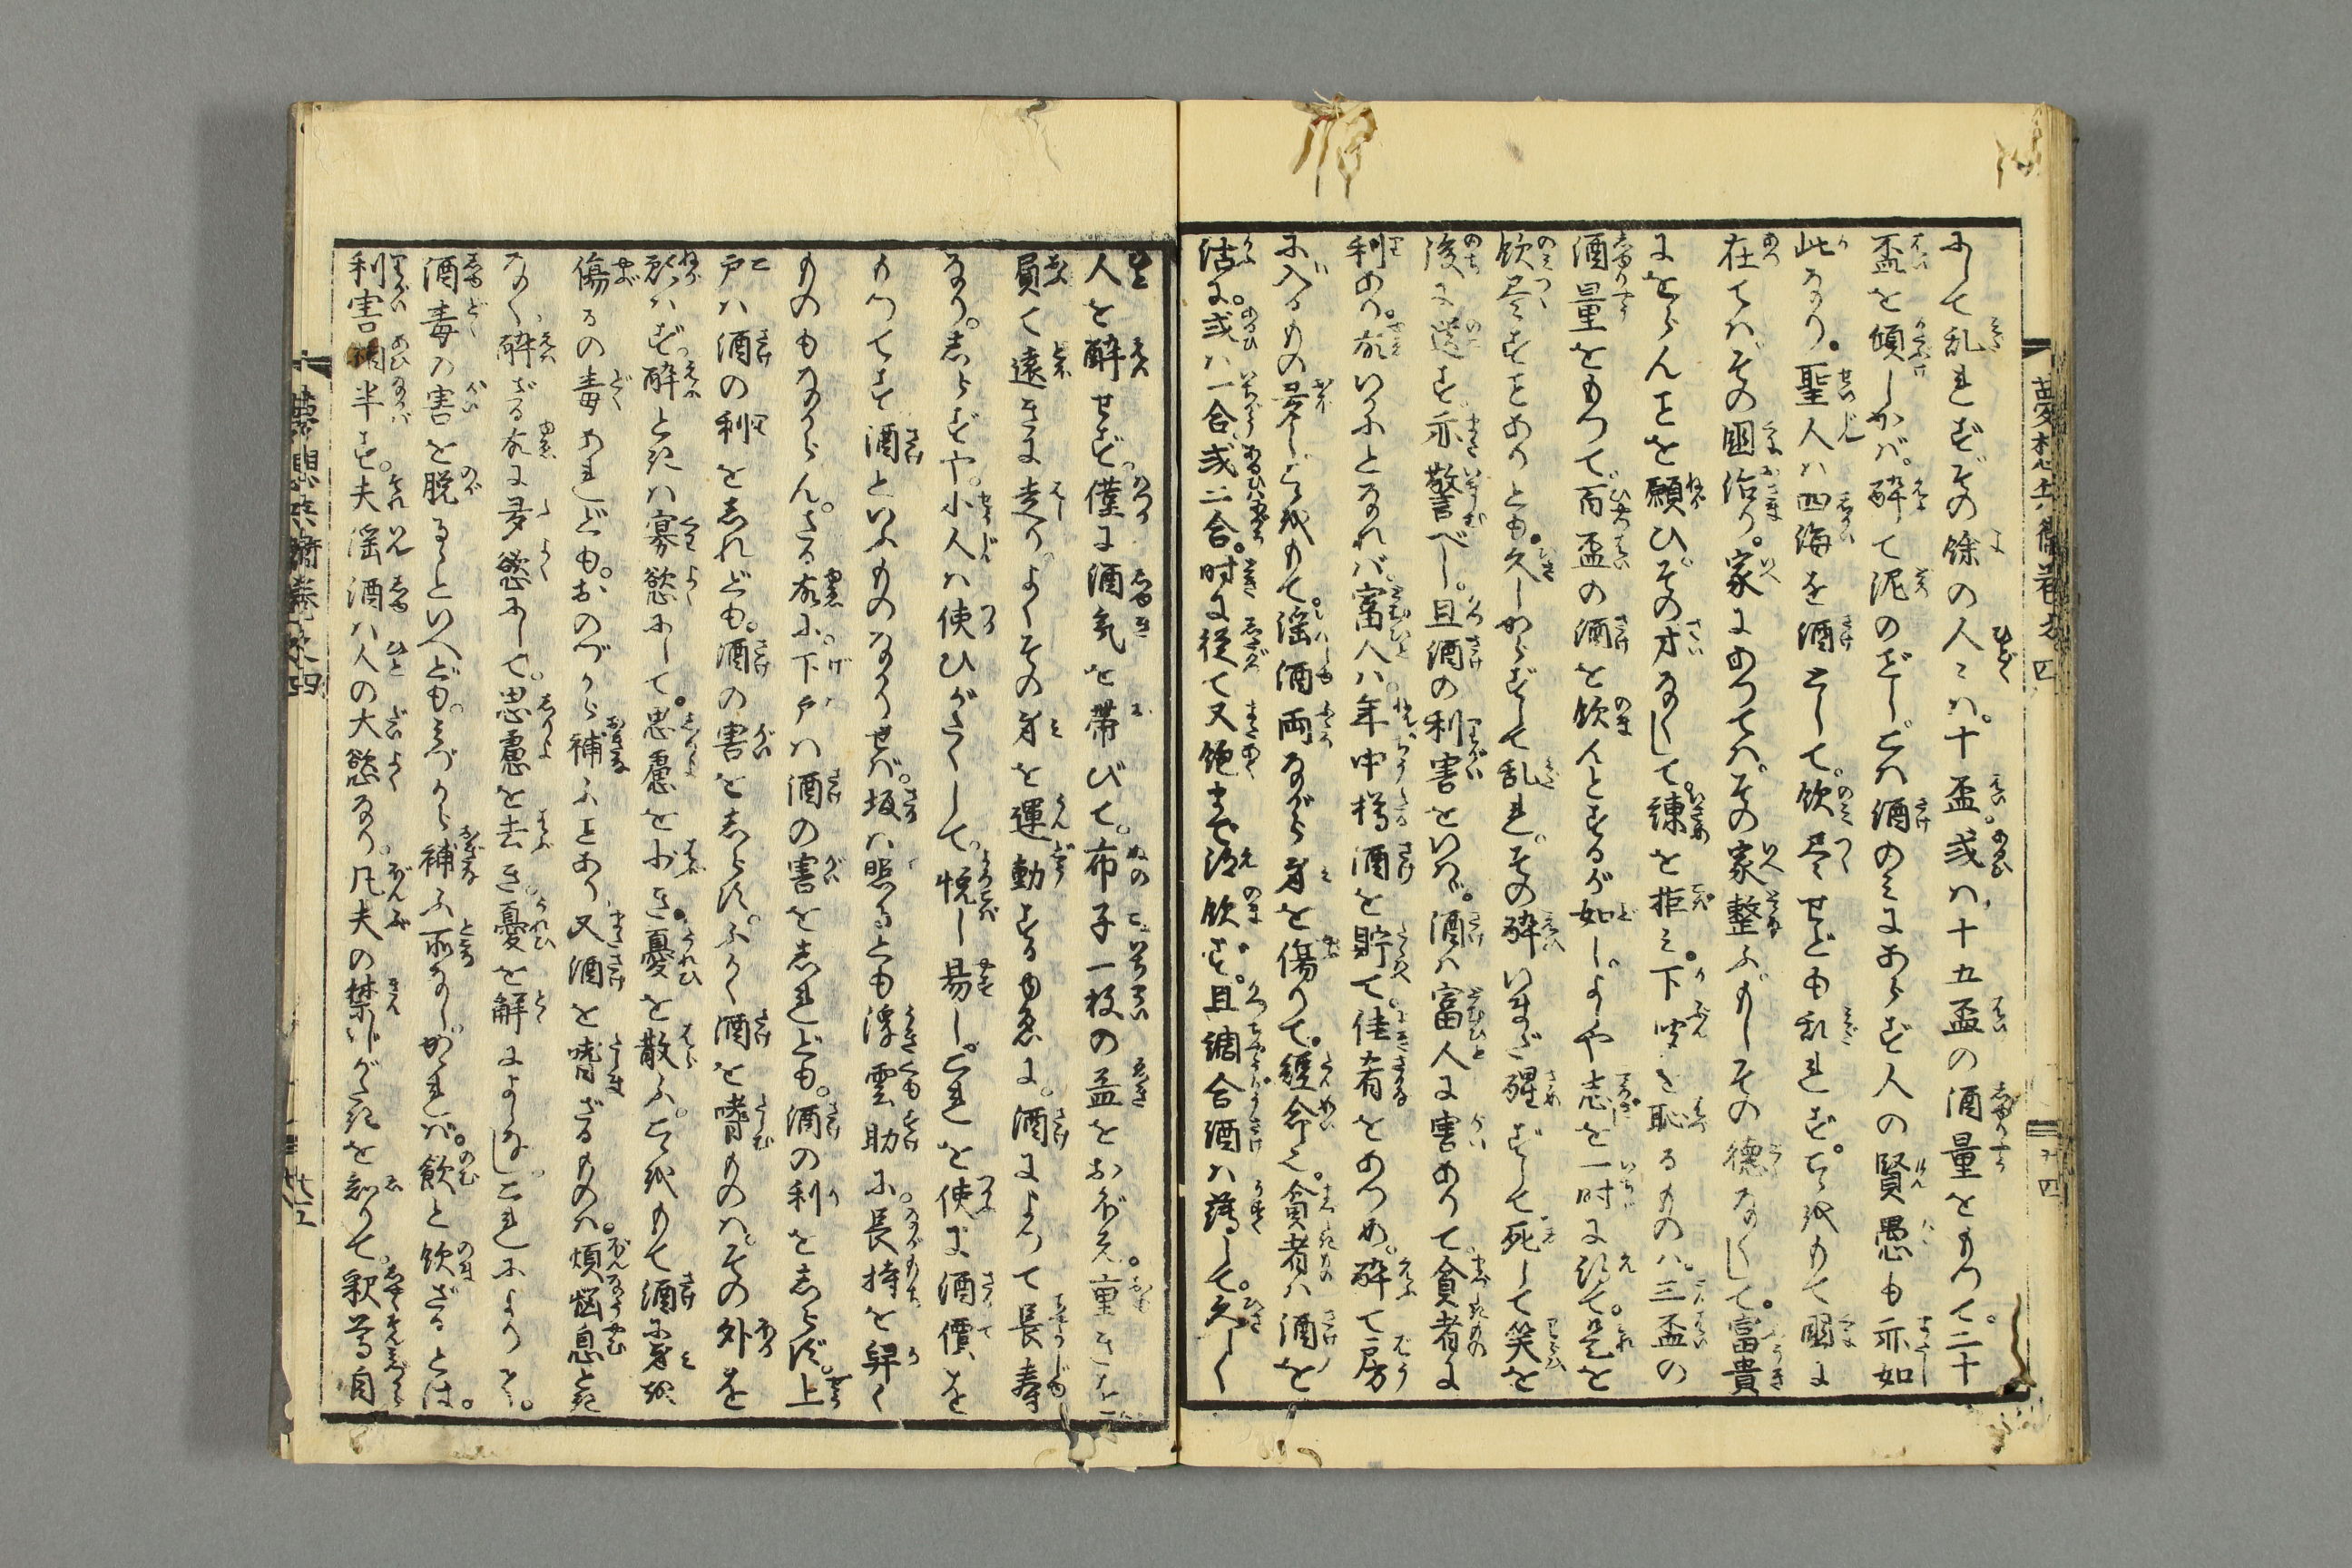 にして乱れず。その餘の人々は。十盃。或は十五盃の酒量をもつて。二十
盃を傾しかば。醉て泥のごとし。こは酒のみにあらず人の賢愚も亦如
此なり。聖人は四海を酒として。飲尽せども乱れず。こゝをもて國に
在ては。その國治り。家にあつては。その家整ふ。もしその德なくして。富貴
にをらんことを願ひ。その才なくして。諫を拒み。下問を恥るものは。三盃の
酒量をもつて。百盃の酒を飲んとするが如し。よしや志を一時に得て。是を
飲尽すことありとも。久しからずして乱れ。その醉いまだ醒ずして死して笑を
後に遺す。亦警べし。且酒の利害をいはゞ。酒は富人に害ありて。貧者に
利あり。故いかにとなれば。富人は。年中樽酒を貯て。佳肴をあつめ。醉て房
に入るもの多し。こゝをもて。淫酒両ながら身を傷りて。短命也。貧者は酒を
沽に。或は一合或二合。時に從て又飽まで得飲ず。且調合酒は薄して。久しく
人を醉せず。僅に酒気を帯びて。布子一枚の益をおぼえ。重きを
負て遠きに走り。よくその身を運動するゆゑに。酒によつて長壽
なり。しらずや。小人は使ひがたくして。悦し易し。これを使に酒價を
もつてす。酒といふものなかりせば。坂は照るとも浮雲助に。長持を舁く
ものもなからん。さる故に。下戸は酒の害をしれども。酒の利をしらず。上
戸は酒の利をしれども。酒の害をしらず。ふかく酒を嗜ものは。その外を
願はず。醉ときは寡慾にして。思慮をわき。憂を散ふ。こゝをもて酒に身を
傷るの毒あれども。おのづから補ふことあり。又酒を嗜ざるものは。煩悩息とき
なく。醉ざる故に多慾にして。思慮を去き。憂を解によしなし。これによりて。
酒毒の害を脱るゝといへども。みづから補ふ所なし。かゝれば。飲と飲ざるとは。
利害相半す。夫淫酒は人の大慾なり。凡夫の禁じがたきを知りて。釈尊自
夢想兵衛 巻之四